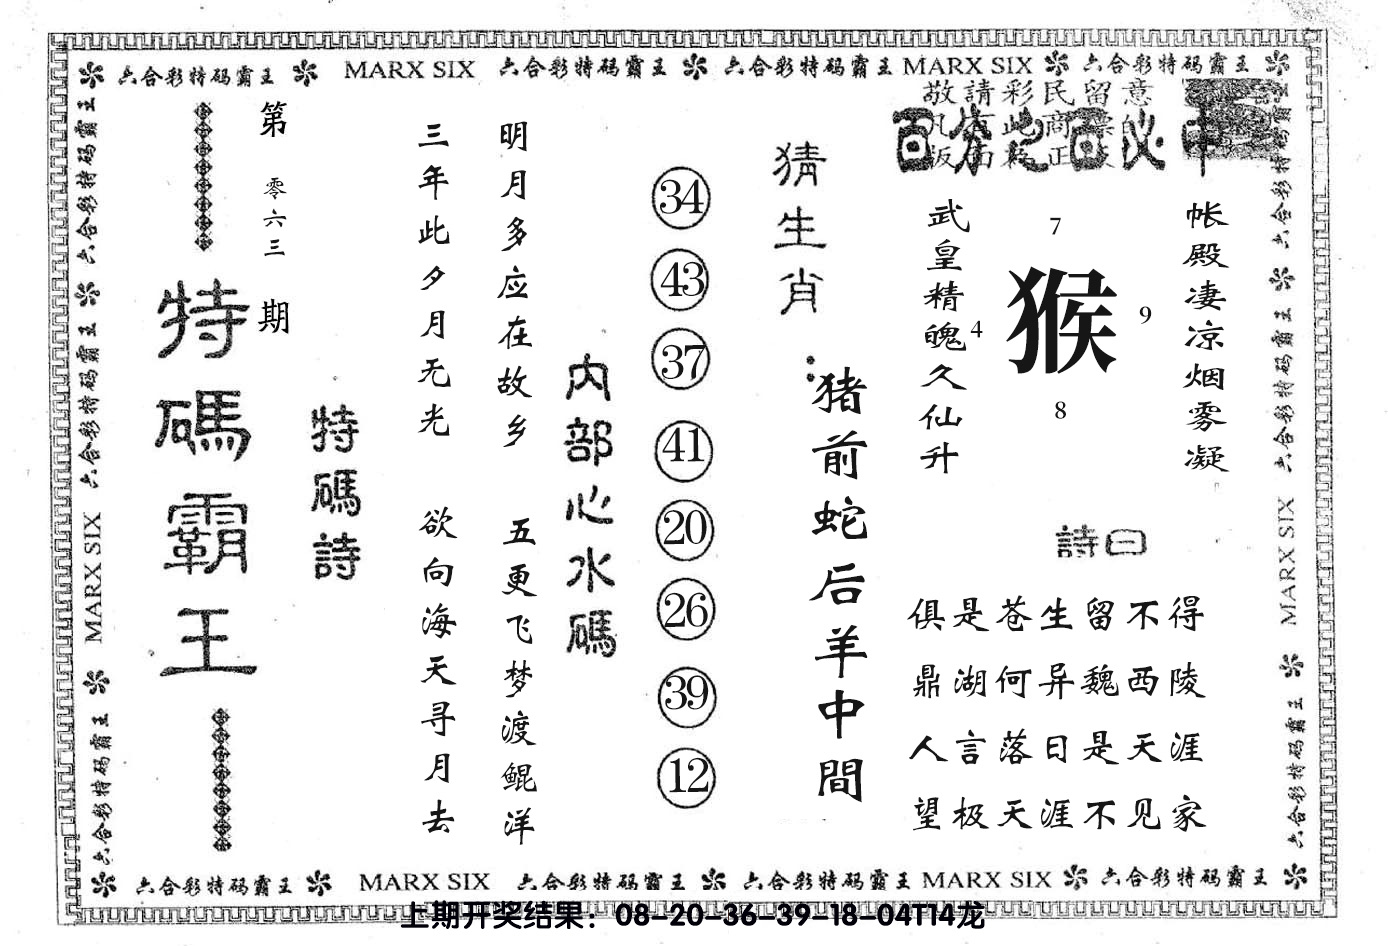 六合彩特码霸王 MARX SIX 六合彩特码霸王 六合彩特码霸王 MARX SIX 六合彩特码霸王
敬請彩民留意
百分之百必中
帐殿凄凉烟雾凝
7
4
猴
9
8
武皇精魄久仙升
詩曰
俱是苍生留不得
鼎湖何异魏西陵
人言落日是天涯
望极天涯不见家
猜生肖：
猪前蛇后羊中間
34
43
37
41
20
26
39
12
内部心水碼
明月多应在故乡 五更飞梦渡鲲洋
三年此夕月无光 欲向海天寻月去
特碼詩
第零六三期
特碼霸王
六合彩特码霸王 六合彩特码霸王 MARX SIX 六合彩特码霸王
六合彩特码霸王 六合彩特码霸王 MARX SIX 六合彩特码霸王
六合彩特码霸王 MARX SIX 六合彩特码霸王 六合彩特码霸王 MARX SIX 六合彩特码霸王
上期开奖结果：08-20-36-39-18-04T14龙